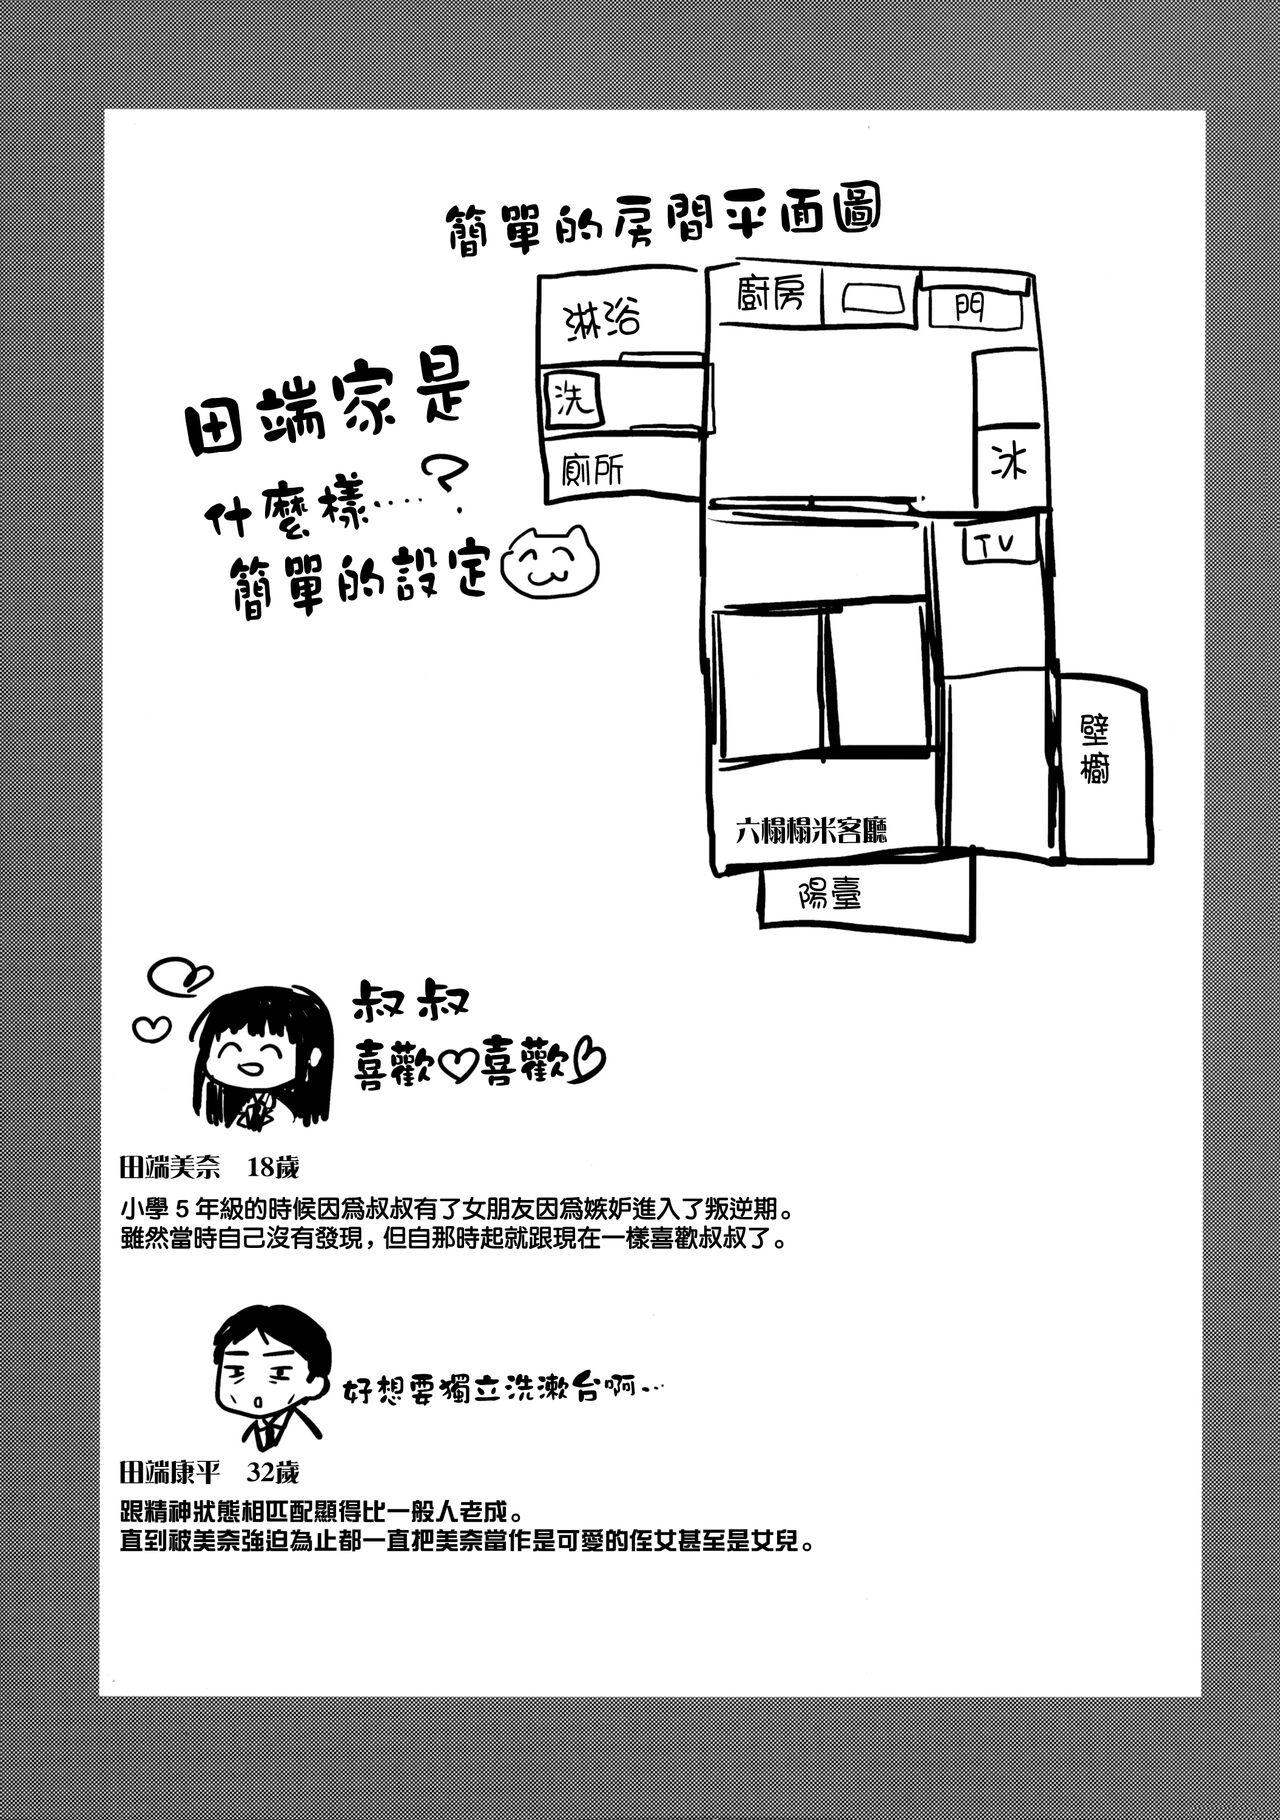 簡單的房間平面圖
田端家是
什麼樣‥‥?
簡單的設定
淋浴
洗
廁所
廚房
門
冰
TV
壁櫥
六榻榻米客廳
陽臺
叔叔
喜歡♡喜歡♡
田端美奈 18歲
小學5年級的時候因為叔叔有了女朋友因為嫉妒進入了叛逆期。
雖然當時自己沒有發現，但自那時起就跟現在一樣喜歡叔叔了。
好想要獨立洗漱台啊…
田端康平 32歲
跟精神狀態相匹配顯得比一般人老成。
直到被美奈強迫為止都一直把美奈當作是可愛的侄女甚至是女兒。